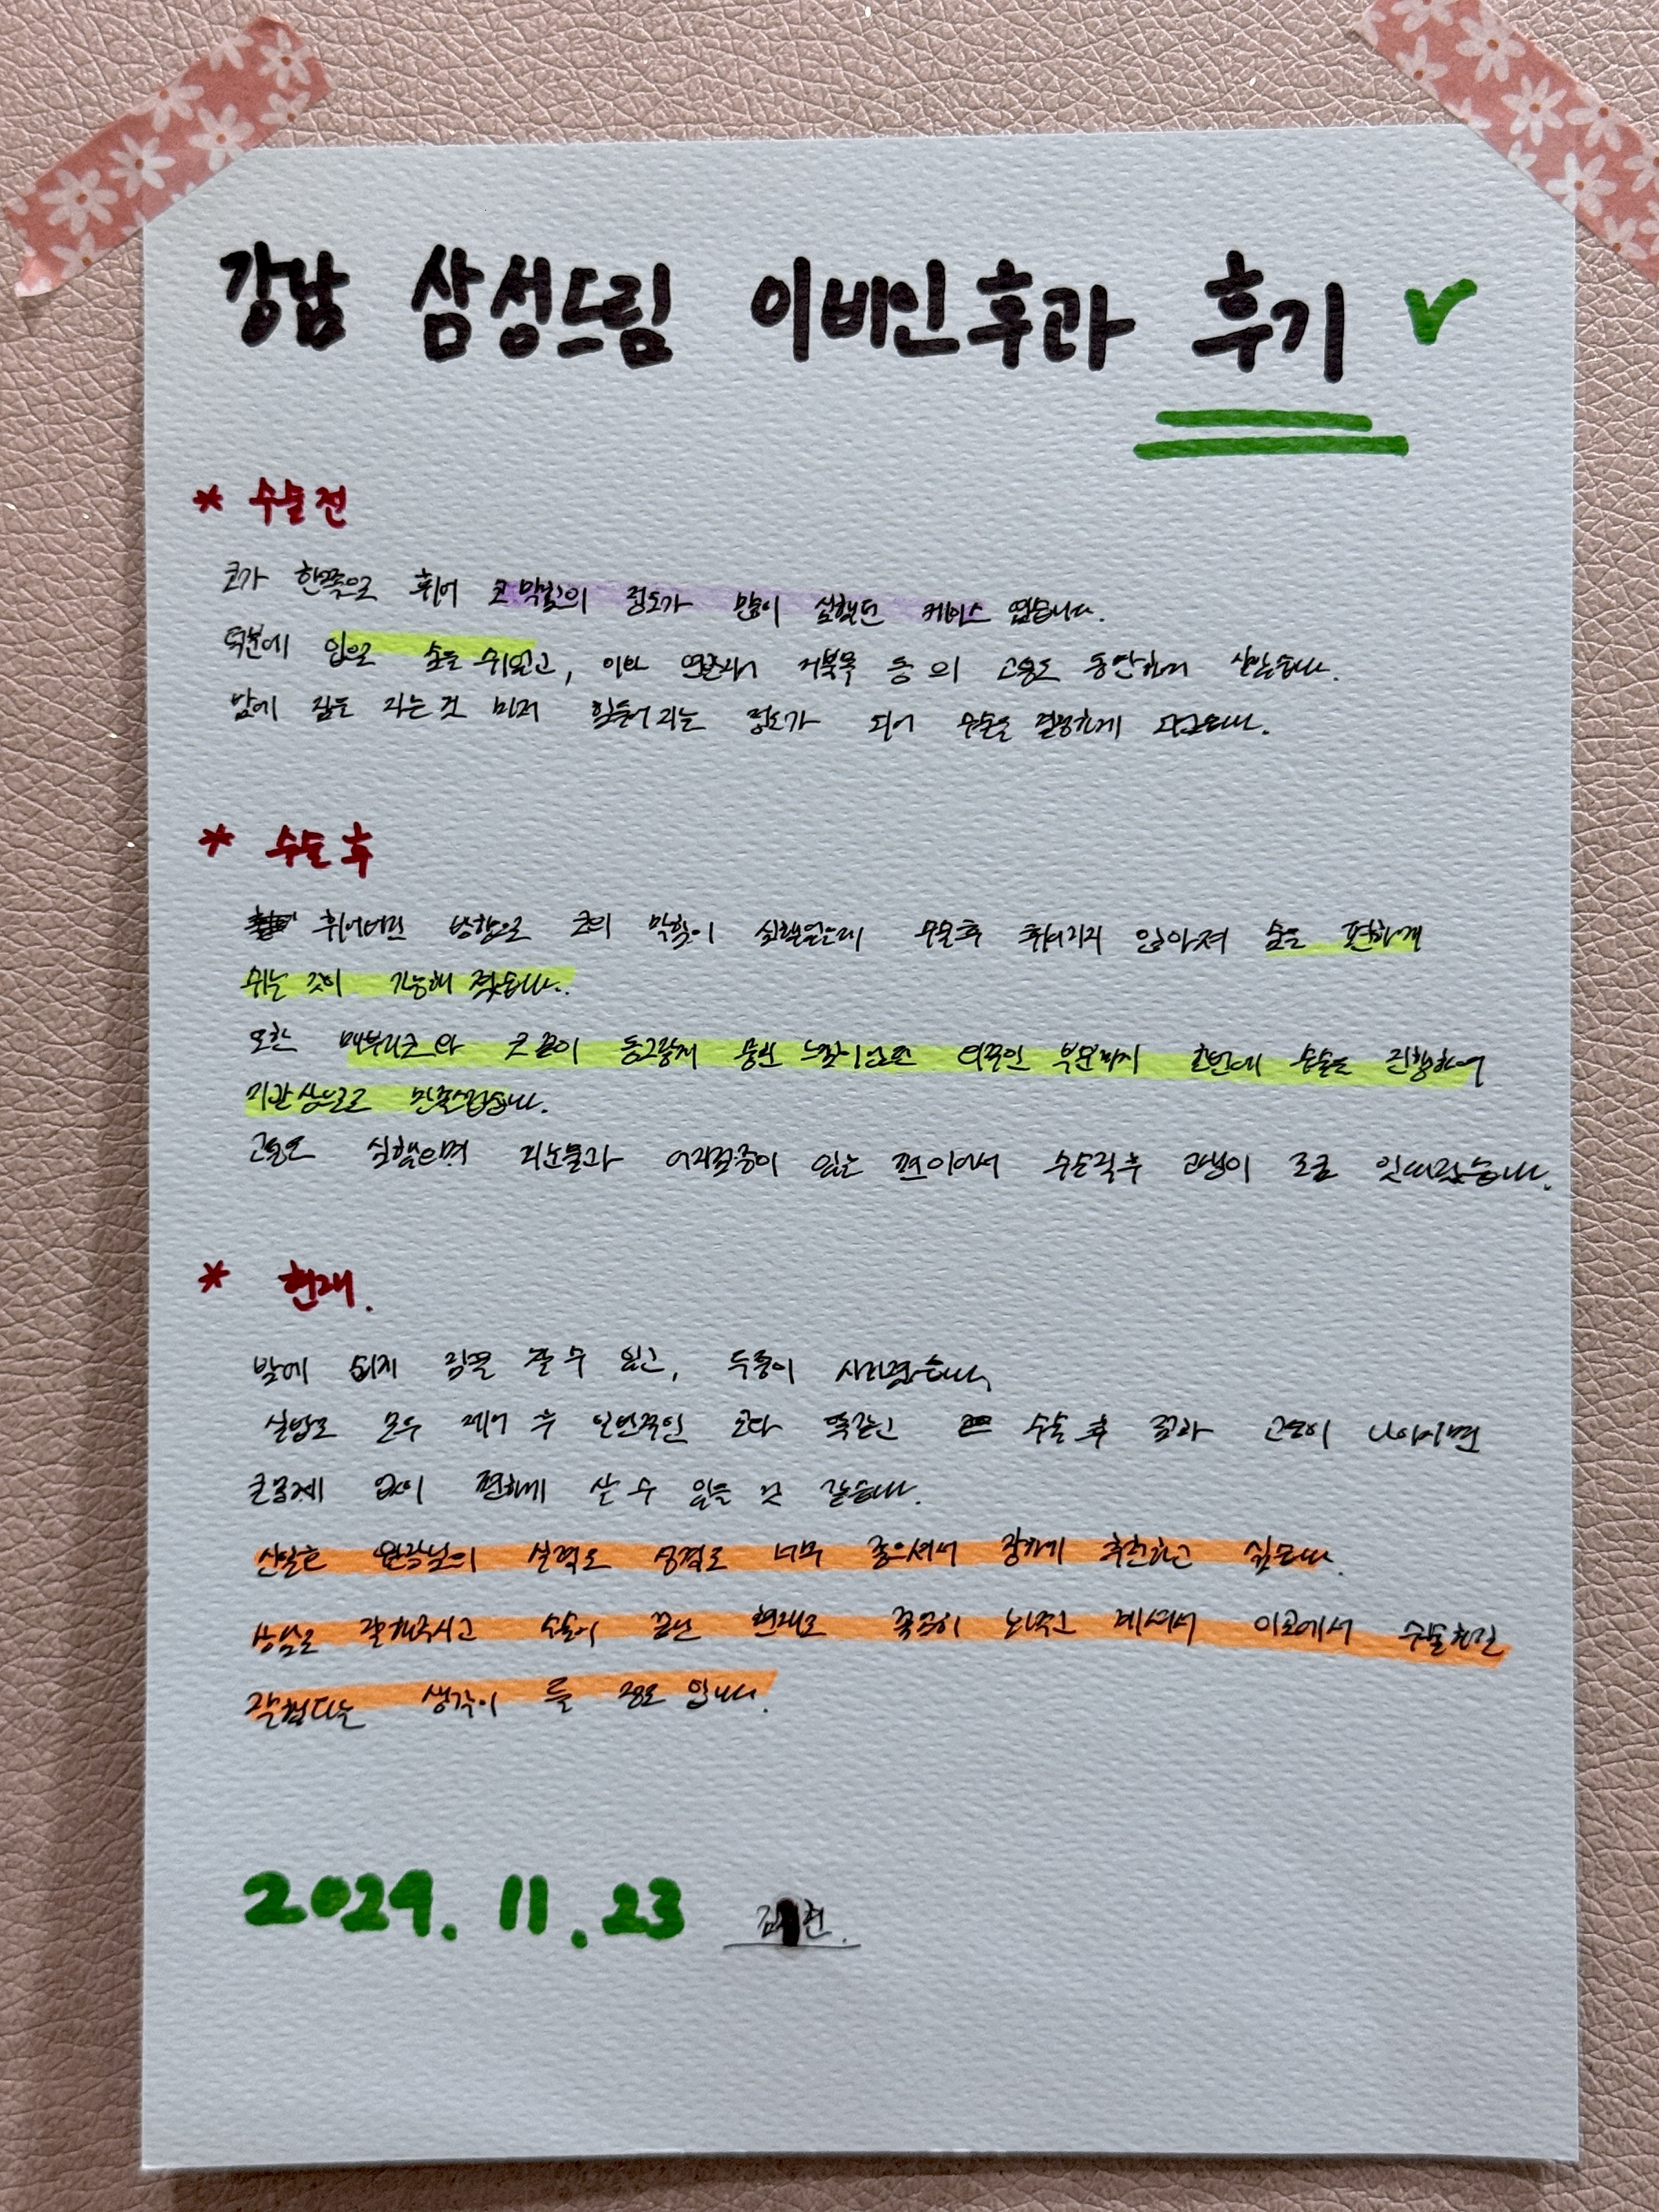 강남 삼성드림 이비인후과 후기
* 수술 전
코가 한쪽으로 휘어 코막힘의 정도가 많이 심했던 케이스 였습니다.
덕분에 입으로 숨을 쉬었고, 이와 연관되어 거북목 등의 고통도 동반하며 살았습니다.
밤에 잠을 자는 것 마저 힘들어지는 정도가 되어 수술을 결정하게 되었습니다.
* 수술 후
휘어버린 방향으로 코의 막힘이 심했었는데 수술후 휘어지지 않아져 숨을 편하게
쉬는 것이 가능해 졌습니다.
또한 매부리코와 코 끝이 동그랗게 뭉친 느낌이었던 외적인 부분까지 한번에 수술을 진행하여
미관상으로도 만족스럽습니다.
고통도 심했으며 피눈물과 어지럼증이 있는 편이어서 수술직후 고생이 조금 잇따랐습니다.
* 현재.
밤에 쉽게 잠을 잘 수 있고, 두통이 사라졌습니다.
실밥도 모두 제거 후 일반적인 코다 똑같고 수술 후 코과 고통이 나아지면
큰문제 없이 편하게 살 수 있을 것 같습니다.
신일호 원장님의 실력도 성격도 너무 좋으셔서 강하게 추천하고 싶습니다.
상담도 잘해주시고 수술이 끝난 현재도 꼼꼼히 봐주고 계셔서 이곳에서 수술하길
잘했다는 생각이 들 정도 입니다.
2024. 11. 23 김 현.